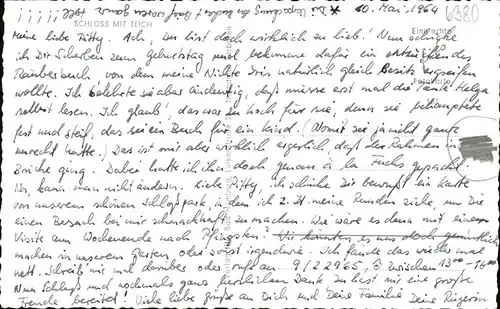 * Du 10. Mai 1964
5380
SCHLOSS MIT TEICH
Meine liebe Kitty. Ach, Du bist doch wirklich zu lieb! Nun schickte
ich Dir Scherben zum Geburtstag und bekomme dafür ein entzückendes
Räuberbuch, von dem meine Nichte Iris natürlich gleich Besitz ergreifen
wollte. Ich belehrte sie aber eindeutig, daß müsse erst mal die Tante Helga
selbst lesen. Ich glaub', das war zu hoch für sie, denn sie behauptete
fest und steif, das sei ein Buch für ein Kind! (Womit sie ja nicht ganz
unrecht hatte.) Das ist mir aber wirklich ergerlich, daß der Rahmen in
Brüche ging. Dabei hatte ich ihn doch genau à la Fuchs gepackt.
No, kann man nicht ändern. Liebe Kitty, ich schicke Dir bewußt ein Karte
von unserem schönen Schloßpark, in dem ich z. Zt. meine Runden ziehe, um Dir
einen Besuch bei mir schmackhaft zu machen. Wie wäre es denn mit einer
Visite am Wochenende nach Pfingsten? Wir könnten es uns doch gemütlich
machen in unserem Garten oder sonst irgendwie. Ich fände das wirklich mal
nett. Schreib mir mal darüber oder ruf an 9/22965, zwischen 13.00-16.00
Nun Schluß und nochmals ganz herzlichen Dank. Du hast mir eine große
Freude bereitet! Viele liebe Grüße an Dich und Deine Familie Deine